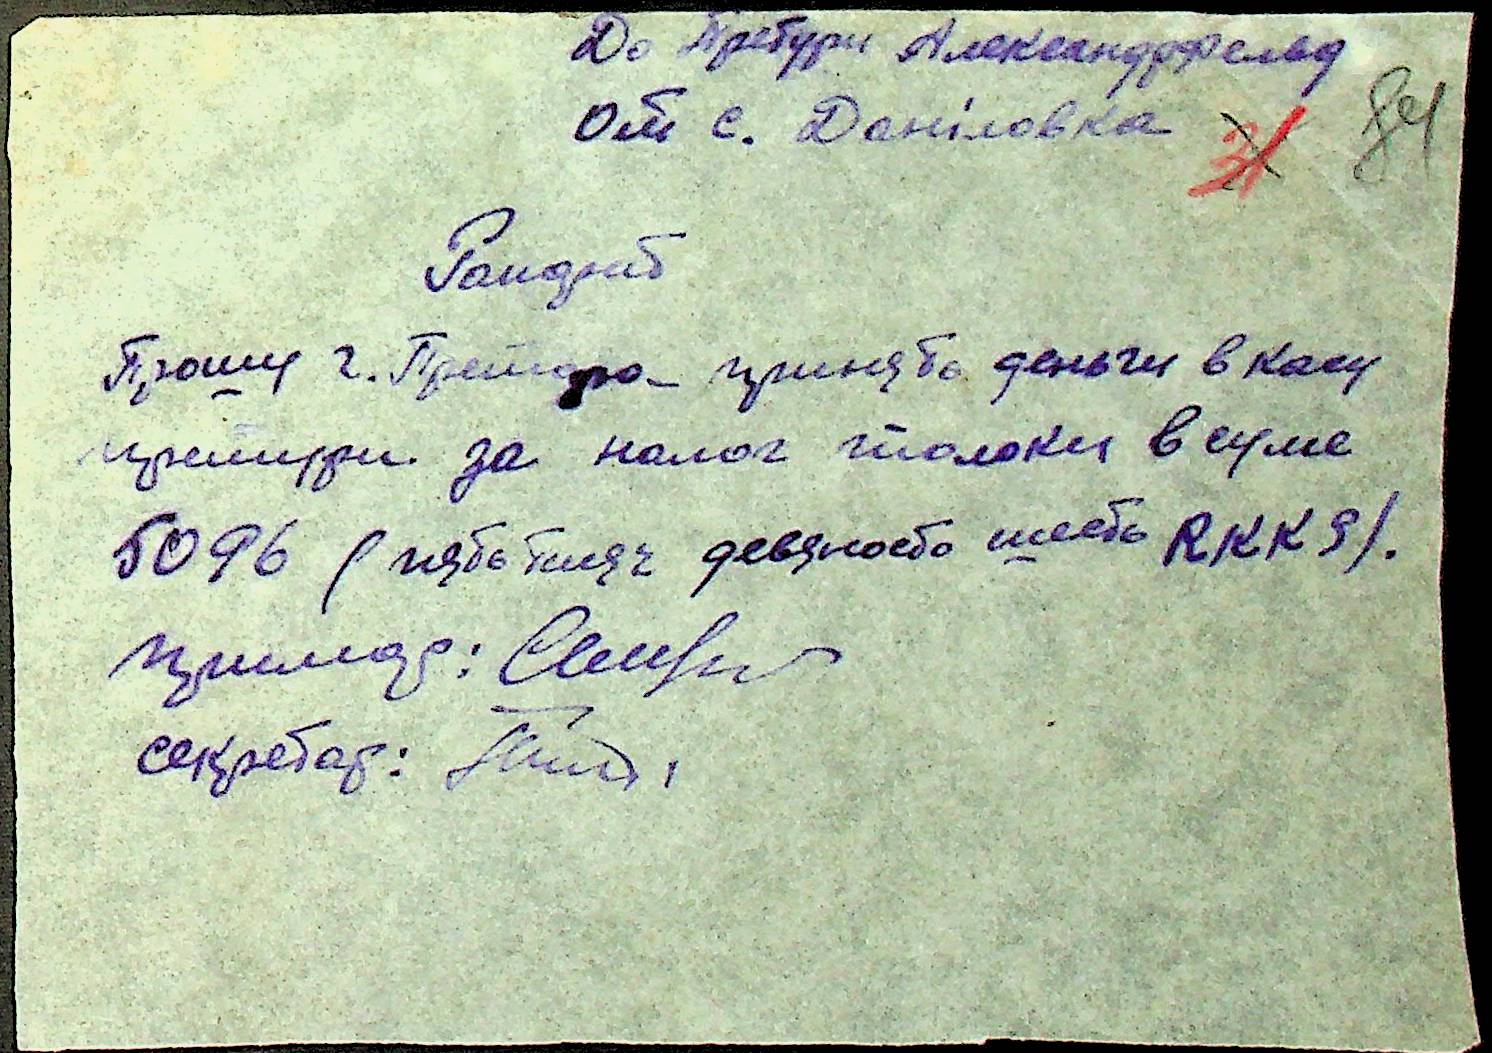 До Претури Александрфельд
От с. Даніловка
31 84
Рапорт
Прошу г. Претора принять деньги в касу
претури за налог толоки в суме
5096 (пять тысяч девяносто шесть RKKS).
примар:
секретар: